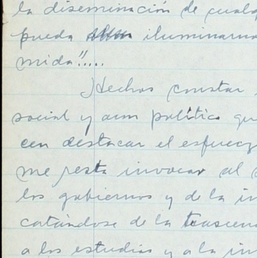 la diseminación de cualq
pueda iluminarno
mida"....
Hechos constar
social y aun político qu
cen destacar el esfuerz
me resta invocar al
los gobiernos y de la in
catándose de la trascen
a los estudios y a la in